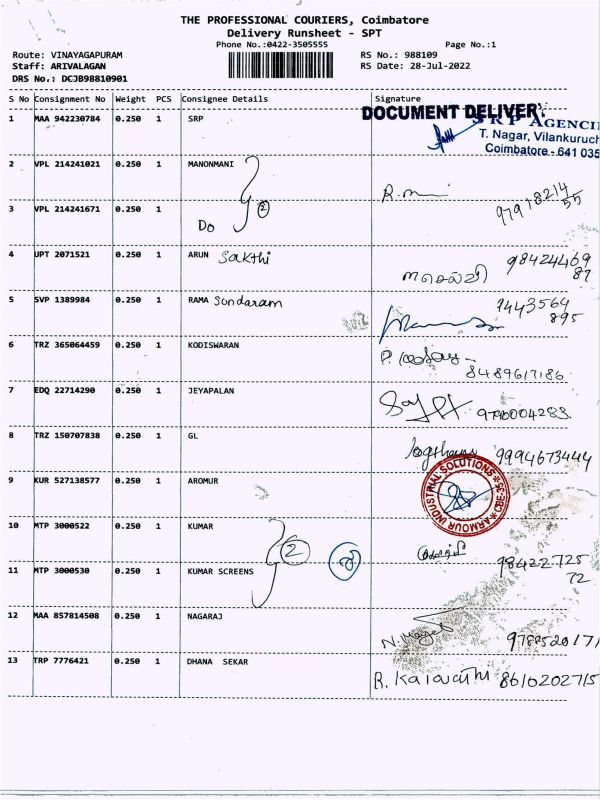 THE PROFESSIONAL COURIERS, Coimbatore
Delivery Runsheet - SPT
Phone No.:0422-3505555 Page No.:1
Route: VINAYAGAPURAM RS No.: 988109
Staff: ARIVALAGAN RS Date: 28-Jul-2022
DRS No.: DCJB98810901
S No Consignment No Weight PCS Consignee Details Signature
DOCUMENT DELIVER
1 MAA 942230784 0.250 1 SRP SRP AGENCI
T. Nagar, Vilankuruch
Coimbatore - 641 035
2 VPL 214241021 0.250 1 MANONMANI
2
3 VPL 214241671 0.250 1 Do
4 UPT 2071521 0.250 1 ARUN Sakthi 98424469
87
5 SVP 1389984 0.250 1 RAMA Sondaram 9443564
895
6 TRZ 365064459 0.250 1 KODISWARAN
8489617186
7 EDQ 22714290 0.250 1 JEYAPALAN 9790004283
8 TRZ 150707838 0.250 1 GL 9994673444
9 KUR 527138577 0.250 1 AROMUR
ARMOUR INDUSTRIAL SOLUTIONS * CBE-35 *
10 MTP 3000522 0.250 1 KUMAR
2
98422725
72
11 MTP 3000530 0.250 1 KUMAR SCREENS
12 MAA 857814508 0.250 1 NAGARAJ
13 TRP 7776421 0.250 1 DHANA SEKAR R. Kalavathi 8610202715